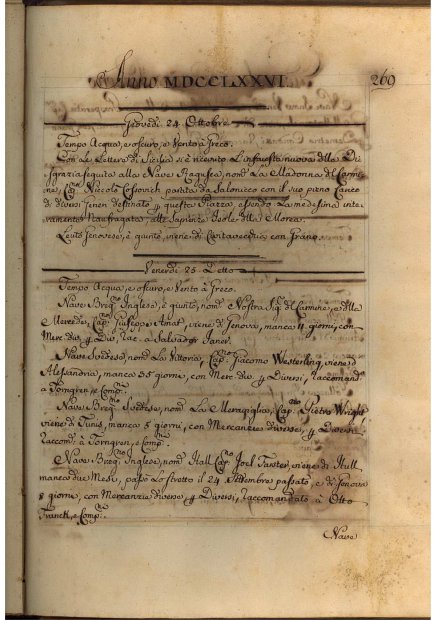 Anno MDCCLXXVI
260
Giovedi 24 Ottobre
Tempo Acqua, e oscuro, e Vento à Greco.
Con Le Lettere di Sicilia si è ricevuto L'infausta nuova della Di
sgrazia seguita alla Nave Ragusea, nomta La Madonna del Carmi
ne, Capno Niccolò Cosovich partita da Salonicco con il suo pieno Carico
di diversi Generi destinato p questa Piazza, essendo La medesima inte
ramente Naufragata alle Sapienze Isole della Morea.
Leuto Genovese, è giunto, viene di Civitavecchia con Grano.
Venerdi 25 Detto
Tempo Acqua, e oscuro, e Vento à Greco.
Nave Brigno Inglese, è giunto, nomto Nostra Sigra del Carmine, e della
Mercede, Capno Giuseppe Amat, viene di Genova, manca 11 giorni, con
Mer: div: p Div: Rac: a Salvador Janer.
Nave Svedese, nomta La Vittoria, Capno Giacomo Westerling, viene d'
Alessandria, manca 35 giorni, con Mer: div: p Diversi, Raccomand:
a Törngren, e Compni
Nave Brigno Svedese, nomto La Meraviglia, Capno Pietro Wright
viene di Tunis, manca 5 giorni, con Mercanzie diverse, p Diversi
Raccom: à Törngren, e Compni
Nave Brigno Inglese, nomto Hall Capno Joel Forster, viene di Hull
manca due Mesi, passò Lo stretto il 24 Settembre passato, e di Genova
8 giorni, con Mercanzia diverse, p Diversi, Raccomandato à Otto
Franck, e Compni
Nave